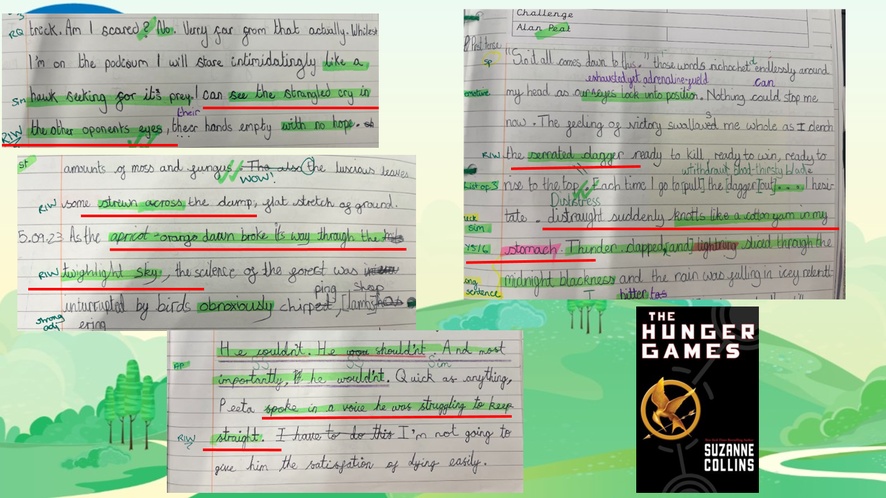 RQ trick. Am I scared? No. Verry far from that actually. Whilest
I'm on the podcoum I will stare intimidatingly like a
hawk seeking for it's prey. I can see the strangled cry in
their
RIW the other oponents eyes, theer hands empty with no hope.
st amounts of moss and fungus. The also the luscious leaves
WOW!
RIW some strewn across the damp, flat stretch of ground.
5.09.23 As the apricot-orange dawn broke it's way through the
RIW twighlight sky, the scilence of the forest was
ping
inturrupted by birds obnoxiously chirped,
strong adj ering
He couldn't. He shouldn't. And most
sim
importantly, he wouldn't. Quick as anything,
Peeta spoke in a voice he was struggling to keep
RIW straight. I have to do this I'm not going to
give him the satisfation of dying easily.
Challenge
Alan Peat
"So it all comes down to this." those words richochet endlessly around
exhausted yet adrenaline-fueld can
my head as our eyes lock into position. Nothing could stop me
now. The feeling of victory swallowed me whole as I clench
RIW the serrated dagger ready to kill, ready to win, ready to
withdraw blood-thirsty blade
rise to the top. Each time I go to [pull] the [dagger][out].... hesi-
Distress
tate. distraught suddenly knotts like a cotton yarn in my
stomach. Thunder clapped [and] lightning shot through the
midnight blackness and the rain was falling in icey relentl
I bitter
THE
HUNGER
GAMES
SUZANNE
COLLINS